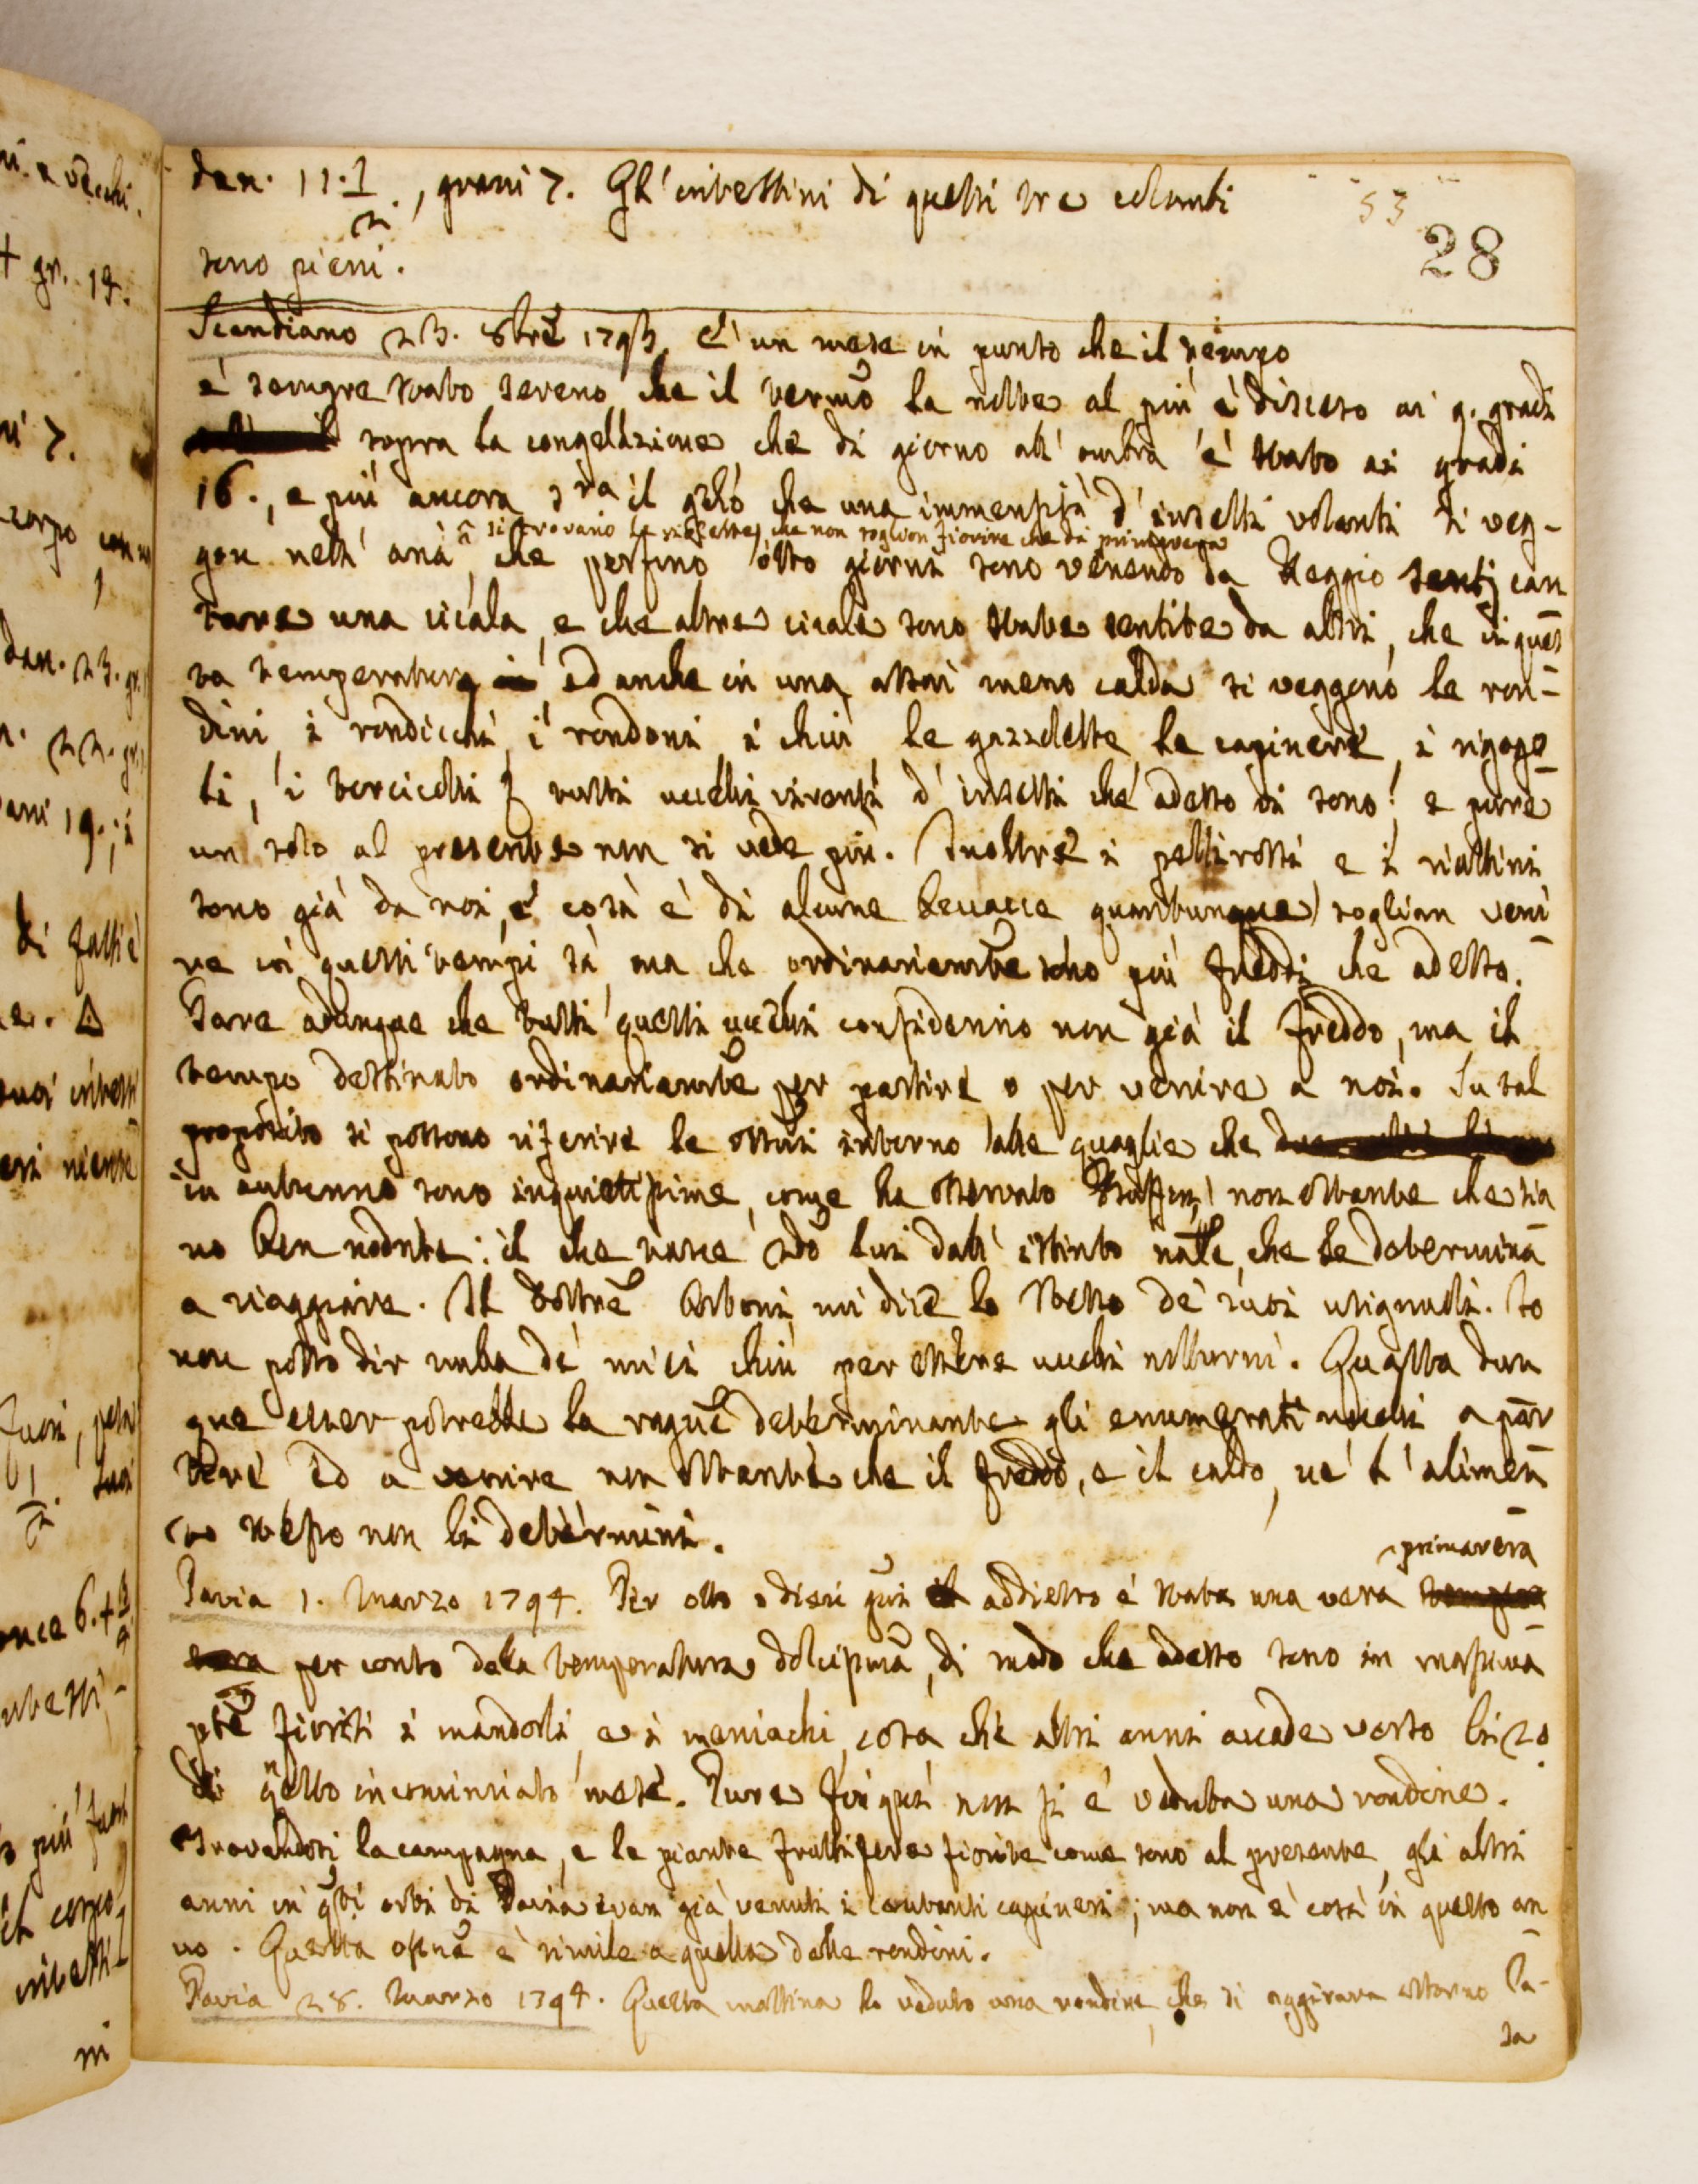 53
28
dan. 11. 1/2., grani 7. Gl' intestini di questi tre colombi
sono pieni.
Scandiano 23. 8bre 1793. E' un mese in punto che il tempo
è sempre stato sereno che il termo la notte al più è disceso ai 9. gradi
sopra la congelazione che di giorno all' ombra è stato ai gradi
16., e più ancora sra il gelo che una immensità d' insetti volanti si veg-
si trovano le violette, che non soglion fiorire che di primavera
gon nell' aria, che perfino otto giorni sono venendo da Reggio sentj can
tare una cicala, e che altre cicale sono state sentite da altri, che in ques
ta temperatura ed anche in una assai meno calda si veggono le ron-
dini i rondicchi, i rondoni i chiù le gazzelette le capinere, i rigogo
li, i torcicolli tutti uccelli viventi d' insetti che adesso vi sono: e pure
un solo al presente non si vede più. Inoltre i pettirossi e i riattini
sono già da noi, e così è di alcune beccacce quantunque soglian veni
re in questi tempi sì, ma che ordinariamte sono più freddi che adesso.
Pare adunque che tutti questi uccelli considerino non già il freddo, ma il
tempo destinato ordinariamte per partire o per venire a noi. Su tal
proposito si possono riferire le ossni intorno alle quaglie che
in autunno sono inquietissime, come ha osservato Buffon, non ostante che sia
no ben nodrite: il che nasce sdo lui dall' istinto nãle, che le determina
a viaggiare. Il dottre Corboni mi dice lo stesso de' suoi usignuoli. Io
non posso dir nulla de' miei chiù per essere uccelli notturni. Qual sia dun
que esser potrebbe la ragne determinante gli enumerati uccelli a par
tire ed a venire non ostante che il freddo, e il caldo, ne' l' alimen
to stesso non li determini.
primavera
Pavia 1. Marzo 1794. Per otto o dieci gni addietro è stata una vera
per conto della temperatura dolcissima, di modo che adesso sono in massima
pte fioriti i mandorli, e i meniachi, cosa che altri anni accade verso li 20.
di qsto incominciato mese. Pure fin qui non si è veduta una rondine.
Trovandosi la campagna, e le piante fruttifere fiorite come sono al presente, gli altri
anni in qsti orti di Pavia eran già venuti i cantanti capineri; ma non è così in questo an
no. Questa ossne è simile a quella delle rondini.
Pavia 28. Marzo 1794. Questa mattina ho veduto una rondine, che si aggirava attorno Ca-
sa